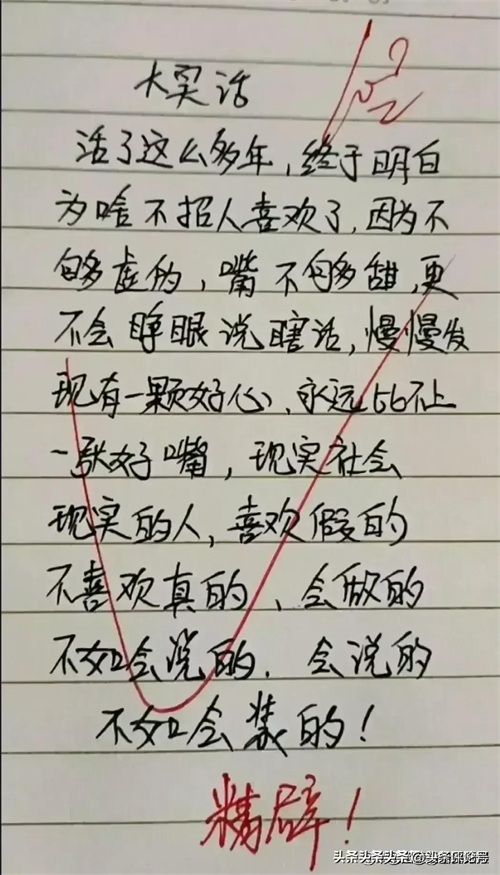 大实话
活了这么多年,终于明白
为啥不招人喜欢了,因为不
够虚伪,嘴不够甜,更
不会睁眼说瞎话,慢慢发
现有一颗好心、永远比不上
一张好嘴,现实社会
现实的人,喜欢假的
不喜欢真的、会做的
不如会说的.会说的
不如会装的!
精辟!